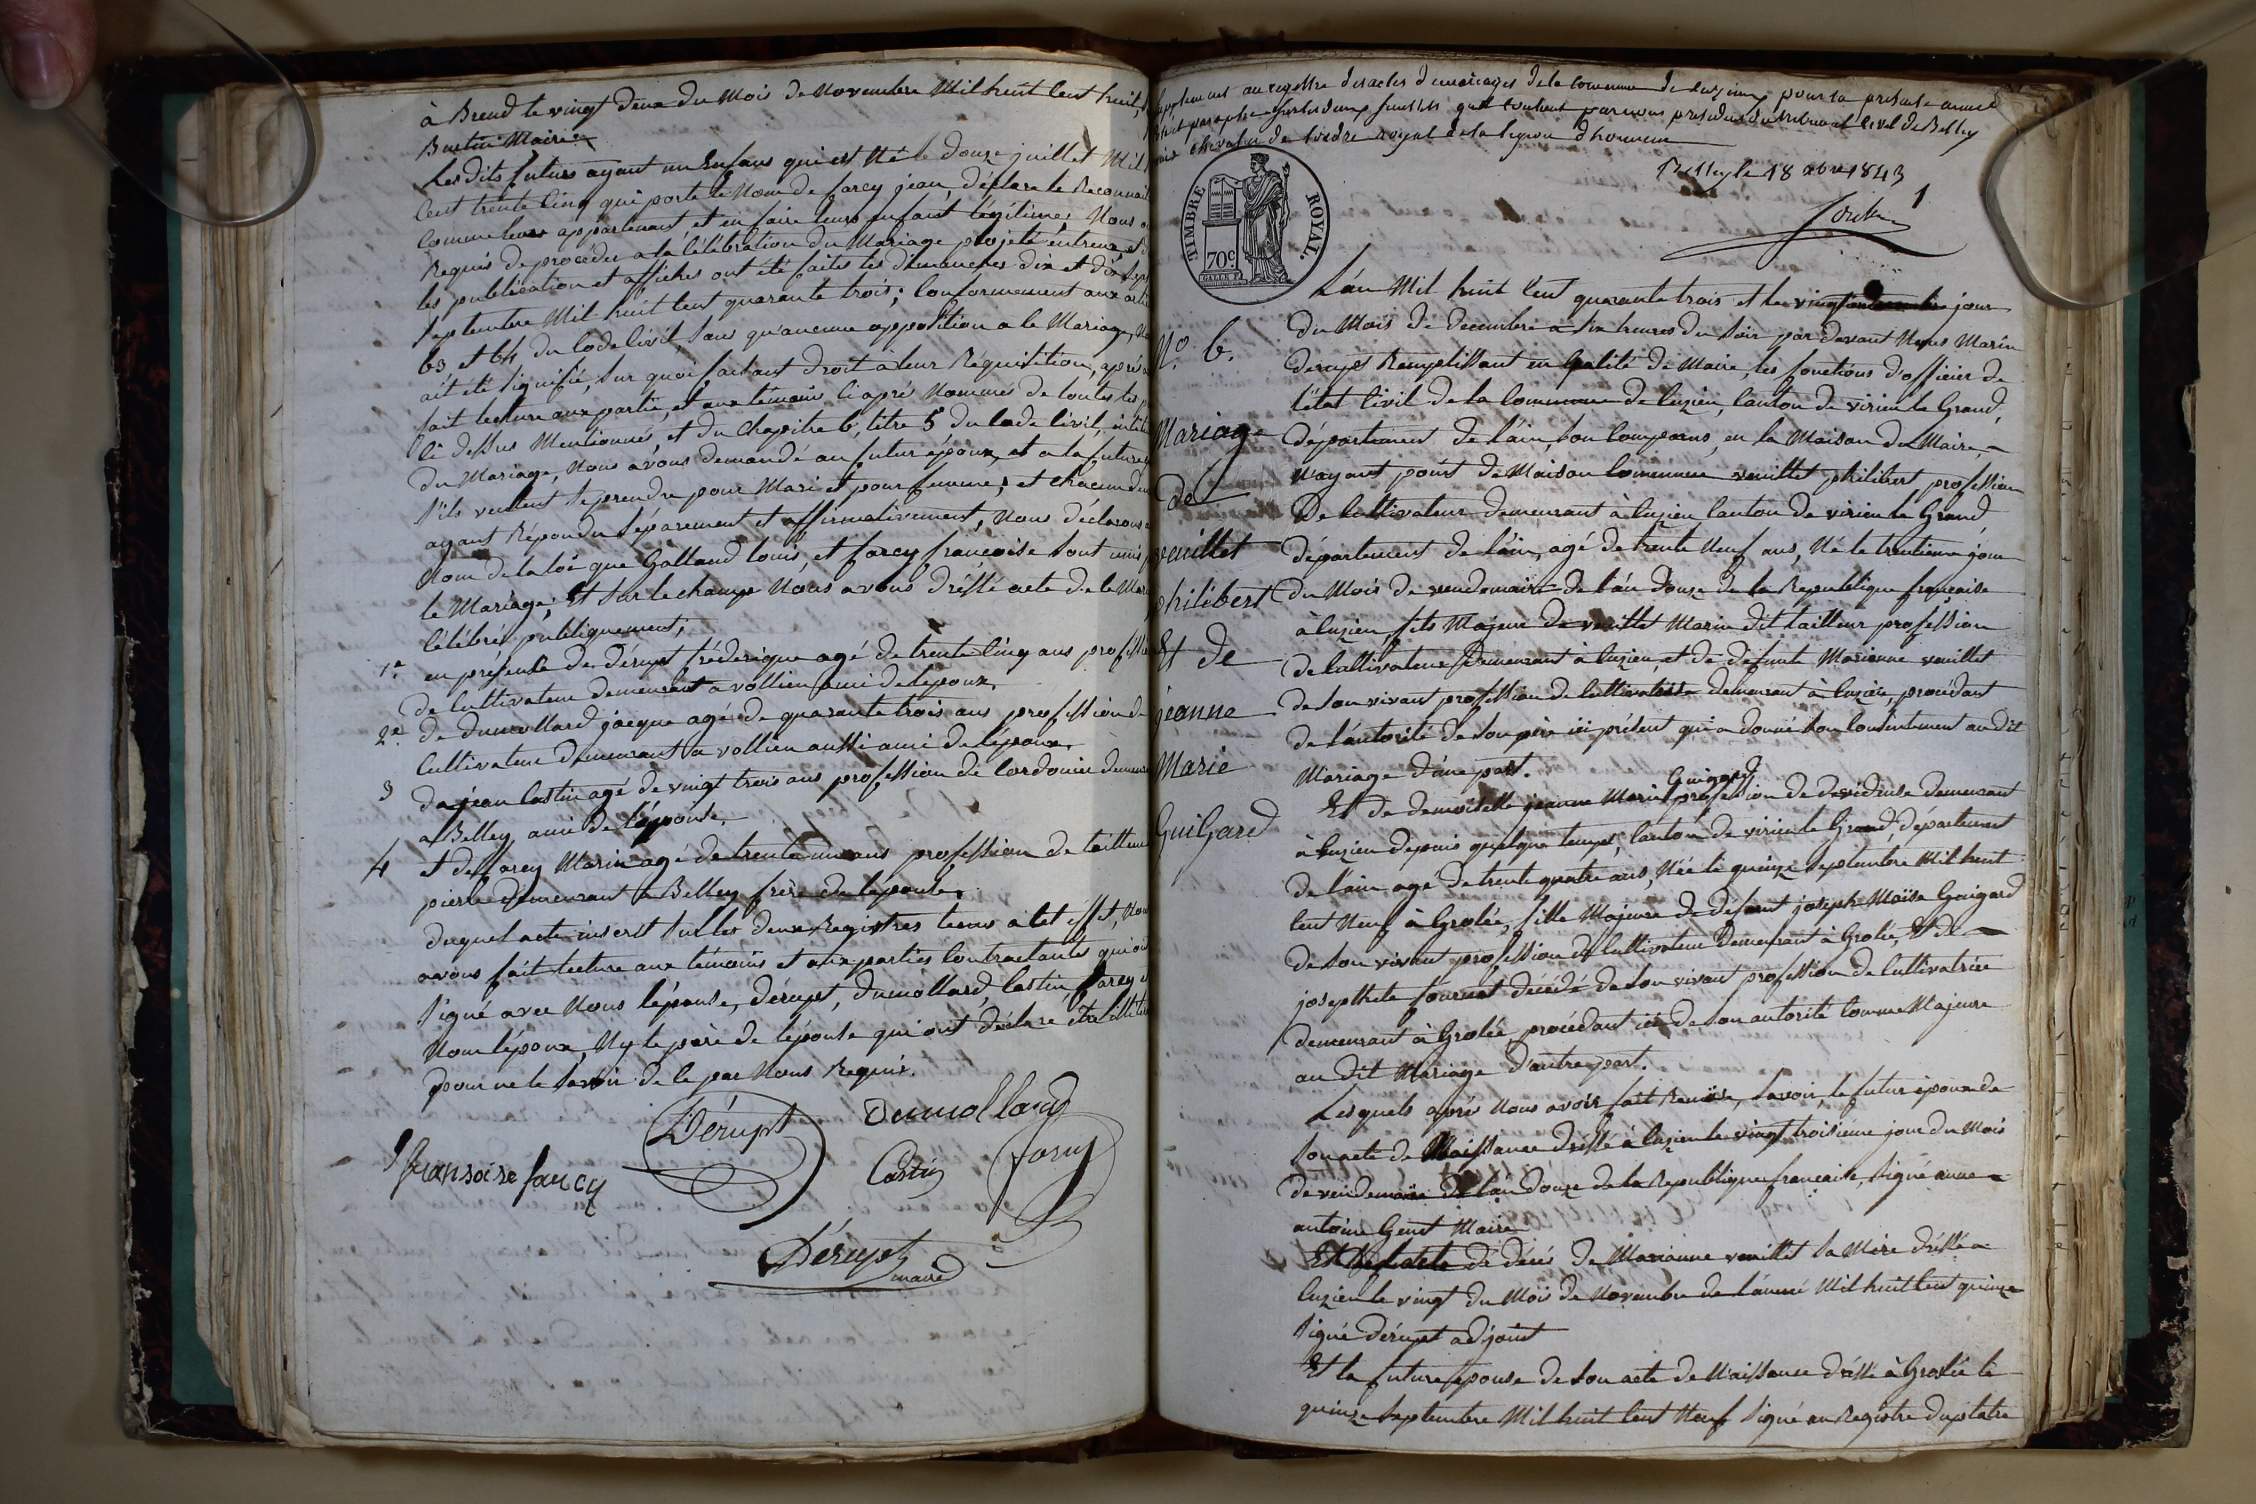 à Brend le vingt deux du Mois de Novembre Mil huit Cent huit,
Bustin Maire.
Les dits futurs ayant un Enfans qui est Né le douze juillet Mil
Cent trente Cinq qui porte le Nom de farcy jean, déclare le Reconnait
Comme leurs appartenant et en faire leurs enfant légitime; Nous
Requis de procéder a la Célébration du Mariage projeté entreux, et
les publication et affiches ont été faites les dimanches dix et dix sept
Septembre Mil huit Cent quarante trois; Conformement aux arti
63 et 64 du Code Civil, sans qu'aucune opposition a le Mariage,
ait été Signifié, sur quoi faisant droit à leur Réquisition, après
fait lecture aux partie, et aux témoins Ci après Nommés de toutes les
Ci dessus Mentionnés, et du Chapitre 6, titre 5 du Code Civil, intitu
du Mariage, Nous avons demandé au futur époux, et a la future
S'ils veulent Se prendre pour Mari et pour femme; et chacun deux
ayant Répondu Séparement et affirmativement, Nous déclarons
Nom de la loi que Galland louis, et farcy françoise Sont unis
le Mariage; Et Sur le champs Nous avons dréssé acte de le Mari
Célébré publiquement;
1.er en présence de dérupt fréderique agé de trente Cinq ans professi
de Cultivateur demeurant a vollien ami de lepoux,
2.e de dumollard jacque agé de quarante trois ans profession de
Cultivateur demeurant a vollien aussi ami de lépoux.
3 de jean Castin agé de vingt trois ans profession de Cordonier demeurant
a Belley ami de l'épouse,
4 et de farcy Marin agé de trente un ans profession de tailleur
pierre demeurant a Belley frère de lepouse,
duquel acte inscrit Sur les deux Registres tenus à Cet éffet, Nous
avons fait lecture aux témoins et aux parties Contractants qui ont
Signé avec Nous l'épouse, dérupt, dumollard, Castin farcy
Non l'époux, Ny le père de l'épouse qui ont déclaré être illitére
pour ne le Savoir de le par Nous Requis.
Dérupt Dumollard
fransoise farcy Castin farcy
Dérupt
maire
Supplement au registre des actes de mariages de la commune de pour la présente année
paraphé par nous president du tribunal civil de Belley
chevalier de l'ordre royal de la legion d'honneur
Belley le 18 xbre 1843
1
TIMBRE ROYAL.
70c
L'an Mil huit Cent quarante trois et le jour
du Mois de decembre a Six heures du Soir par devant Nous Marin
derupt Remplissant en qualité de Maire, les fonctions d'officier de
l'état Civil de la Commune de Cuzieu, Canton de virieu le Grand,
département de l'ain, Son Comparus, en la Maison du Maire,
N'ayant point de Maison Commune veuillet philibert profession
De Cultivateur demeurant à Cuzieu Canton de virieu le Grand,
département de l'ain, agé de trente Neuf ans, Né le trentieme jour
du Mois de vendemaire de l'an douze de la Republique française
à Cuzieu fils Majeur de veuillet Marin dit tailleur profession
de Cultivateur demeurant à Cuzieu et de défunte Marianne veuillet
de Son vivant profession de Cultivatrice demeurant à Cuzieu, procédant
de l'autorité de Son père ici présent qui a donné Son Consentement au dit
Mariage d'une part.
Guigard
Et de demoiselle jeanne Marie profession de dévideuse demeurant
à Cuzieu depuis quelque temps, Canton de virieu le Grand, département
de l'ain agé de trente quatre ans, Née le quinze Septembre Mil huit
Cent Neuf à Grolée, fille Majeure de défunt joseph Maïse Guigard
de Son vivant profession de Cultivateur demeurant à Grolée, Et de
josephete fournat décédé de Son vivant profession de Cultivatrice
demeurant à Grolée, procédant ici de Son autorité Comme Majeure
au dit Mariage d'autre part.
Lesquels après Nous avoir fait Remise, Savoir, le futur époux de
Son acte de Naissance dréssé à Cuzieu le vingt troisième jour du Mois
de vendemaire de l'an douze de la Republique francaise, Signé
antoine Gent Maire
Et de lacte de décés de Marianne veuillet Sa Mère dréssé a
Cuzieu le vingt du Mois de Novembre de l'année Mil huit Cent quinze
Signé dérupt adjoint
Et la future épouse de Son acte de Naissance dréssé à Grolée le
quinze Septembre Mil huit Cent Neuf Signé au Registre duplatre
N.o 6.
Mariage
de
veuillet
philibert
Et de
jeanne
Marie
Guigard